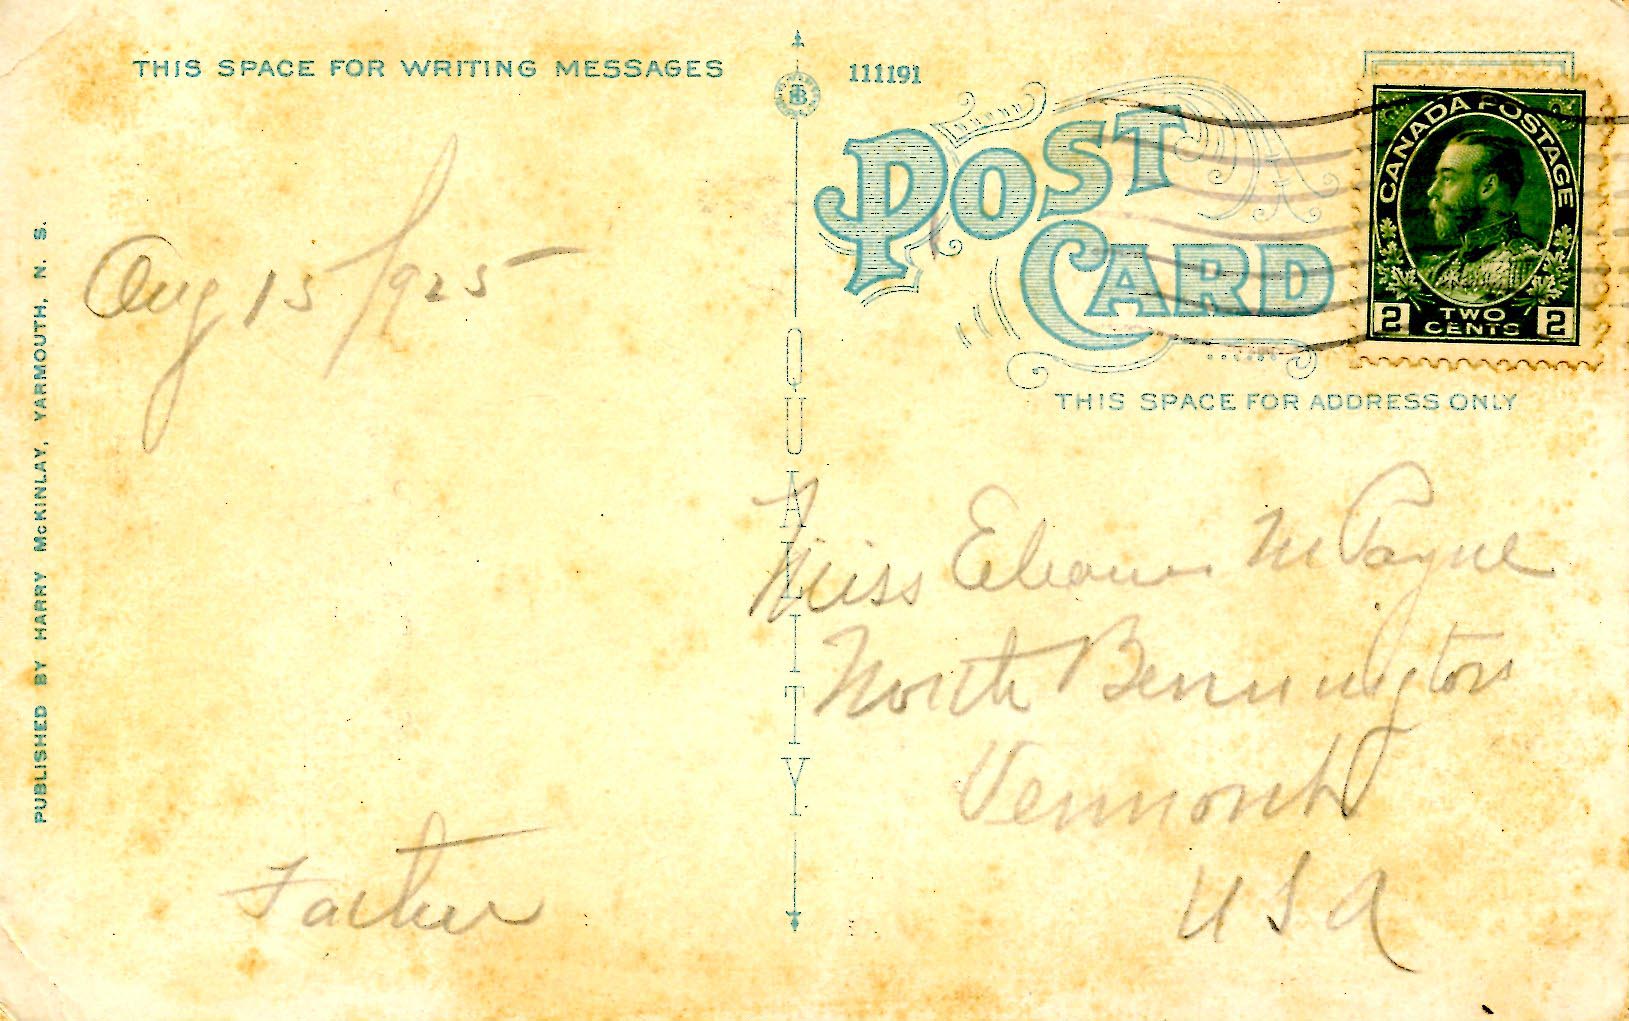 THIS SPACE FOR WRITING MESSAGES
111191
POST
CARD
CANADA POSTAGE
2 TWO CENTS 2
THIS SPACE FOR ADDRESS ONLY
PUBLISHED BY HARRY McKINLAY, YARMOUTH, N. S.
QUALITY
Aug 15/1925
Father
Miss Eleanor M Payne
North Bennington
Vermont
USA